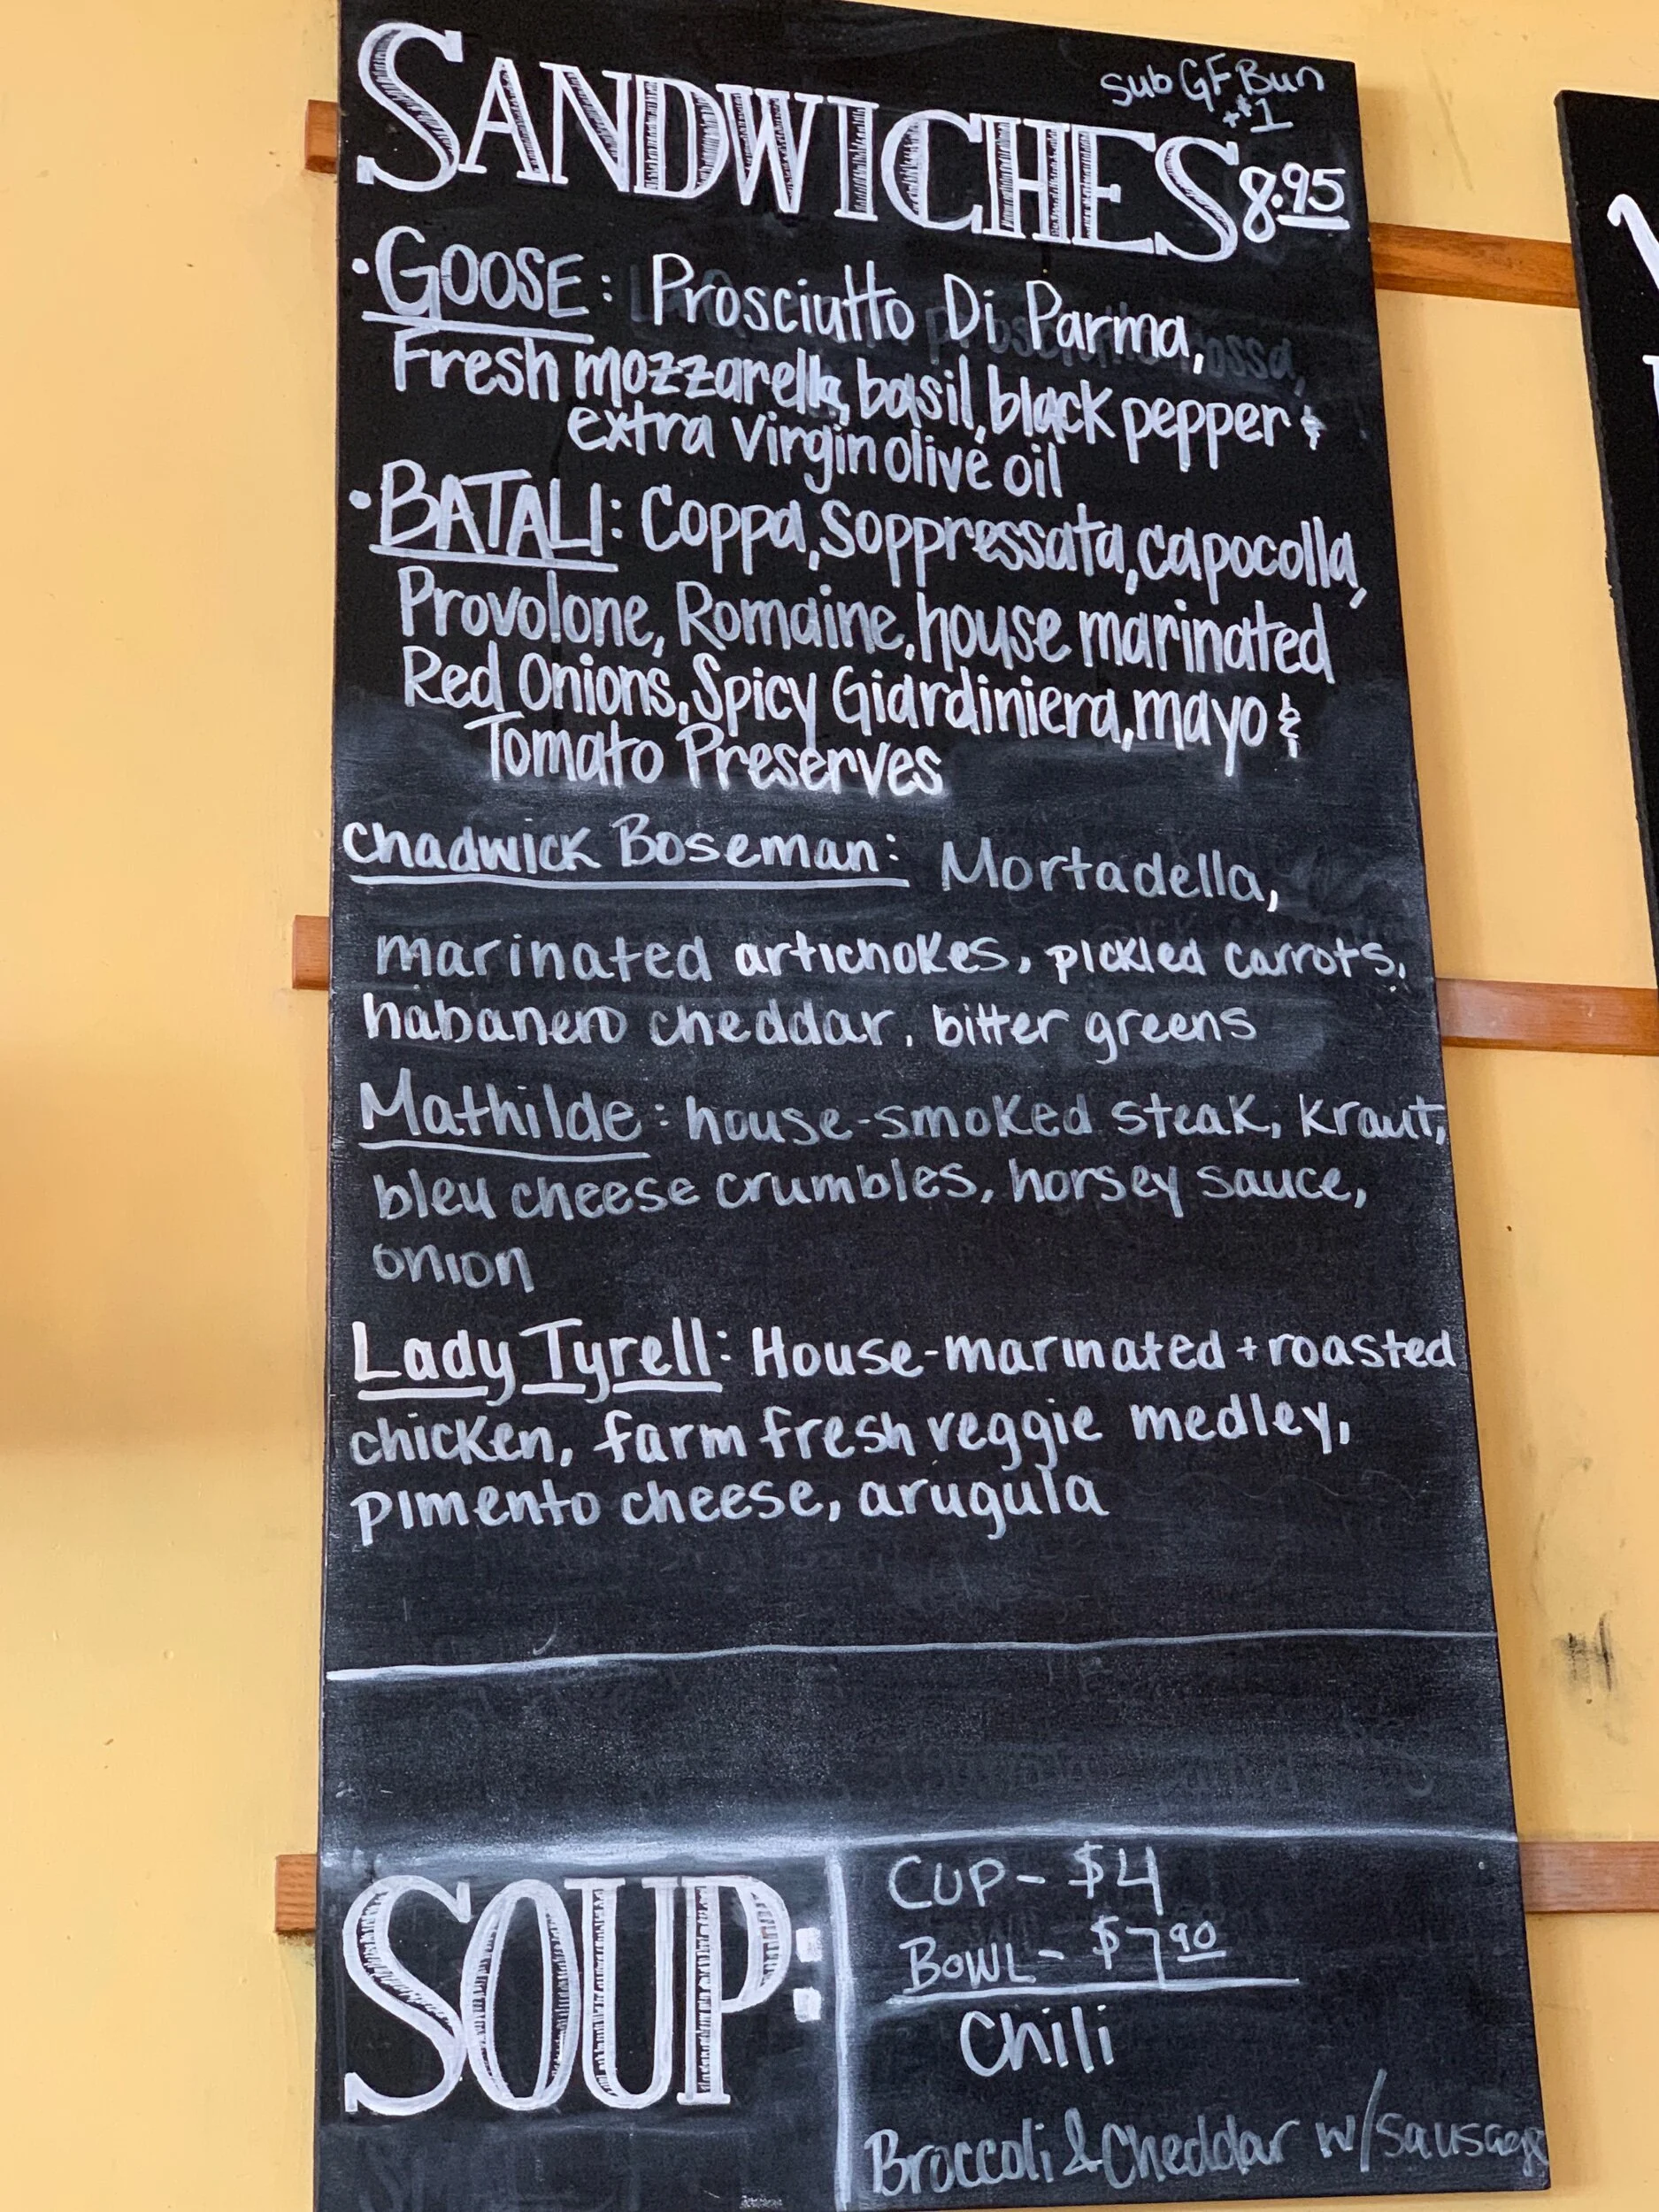 SANDWICHES 8.95
sub GF Bun
+$1
• GOOSE: Prosciutto Di Parma,
Fresh mozzarella, basil, black pepper &
extra virgin olive oil
• BATALI: Coppa, Soppressata, capocolla,
Provolone, Romaine, house marinated
Red Onions, Spicy Giardiniera, mayo &
Tomato Preserves
Chadwick Boseman: Mortadella,
marinated artichokes, pickled carrots,
habanero cheddar, bitter greens
Mathilde: house-smoked steak, kraut,
bleu cheese crumbles, horsey sauce,
onion
Lady Tyrell: House-marinated + roasted
chicken, farm fresh veggie medley,
pimento cheese, arugula
SOUP:
CUP - $4
BOWL - $7.90
Chili
Broccoli & Cheddar w/sausage